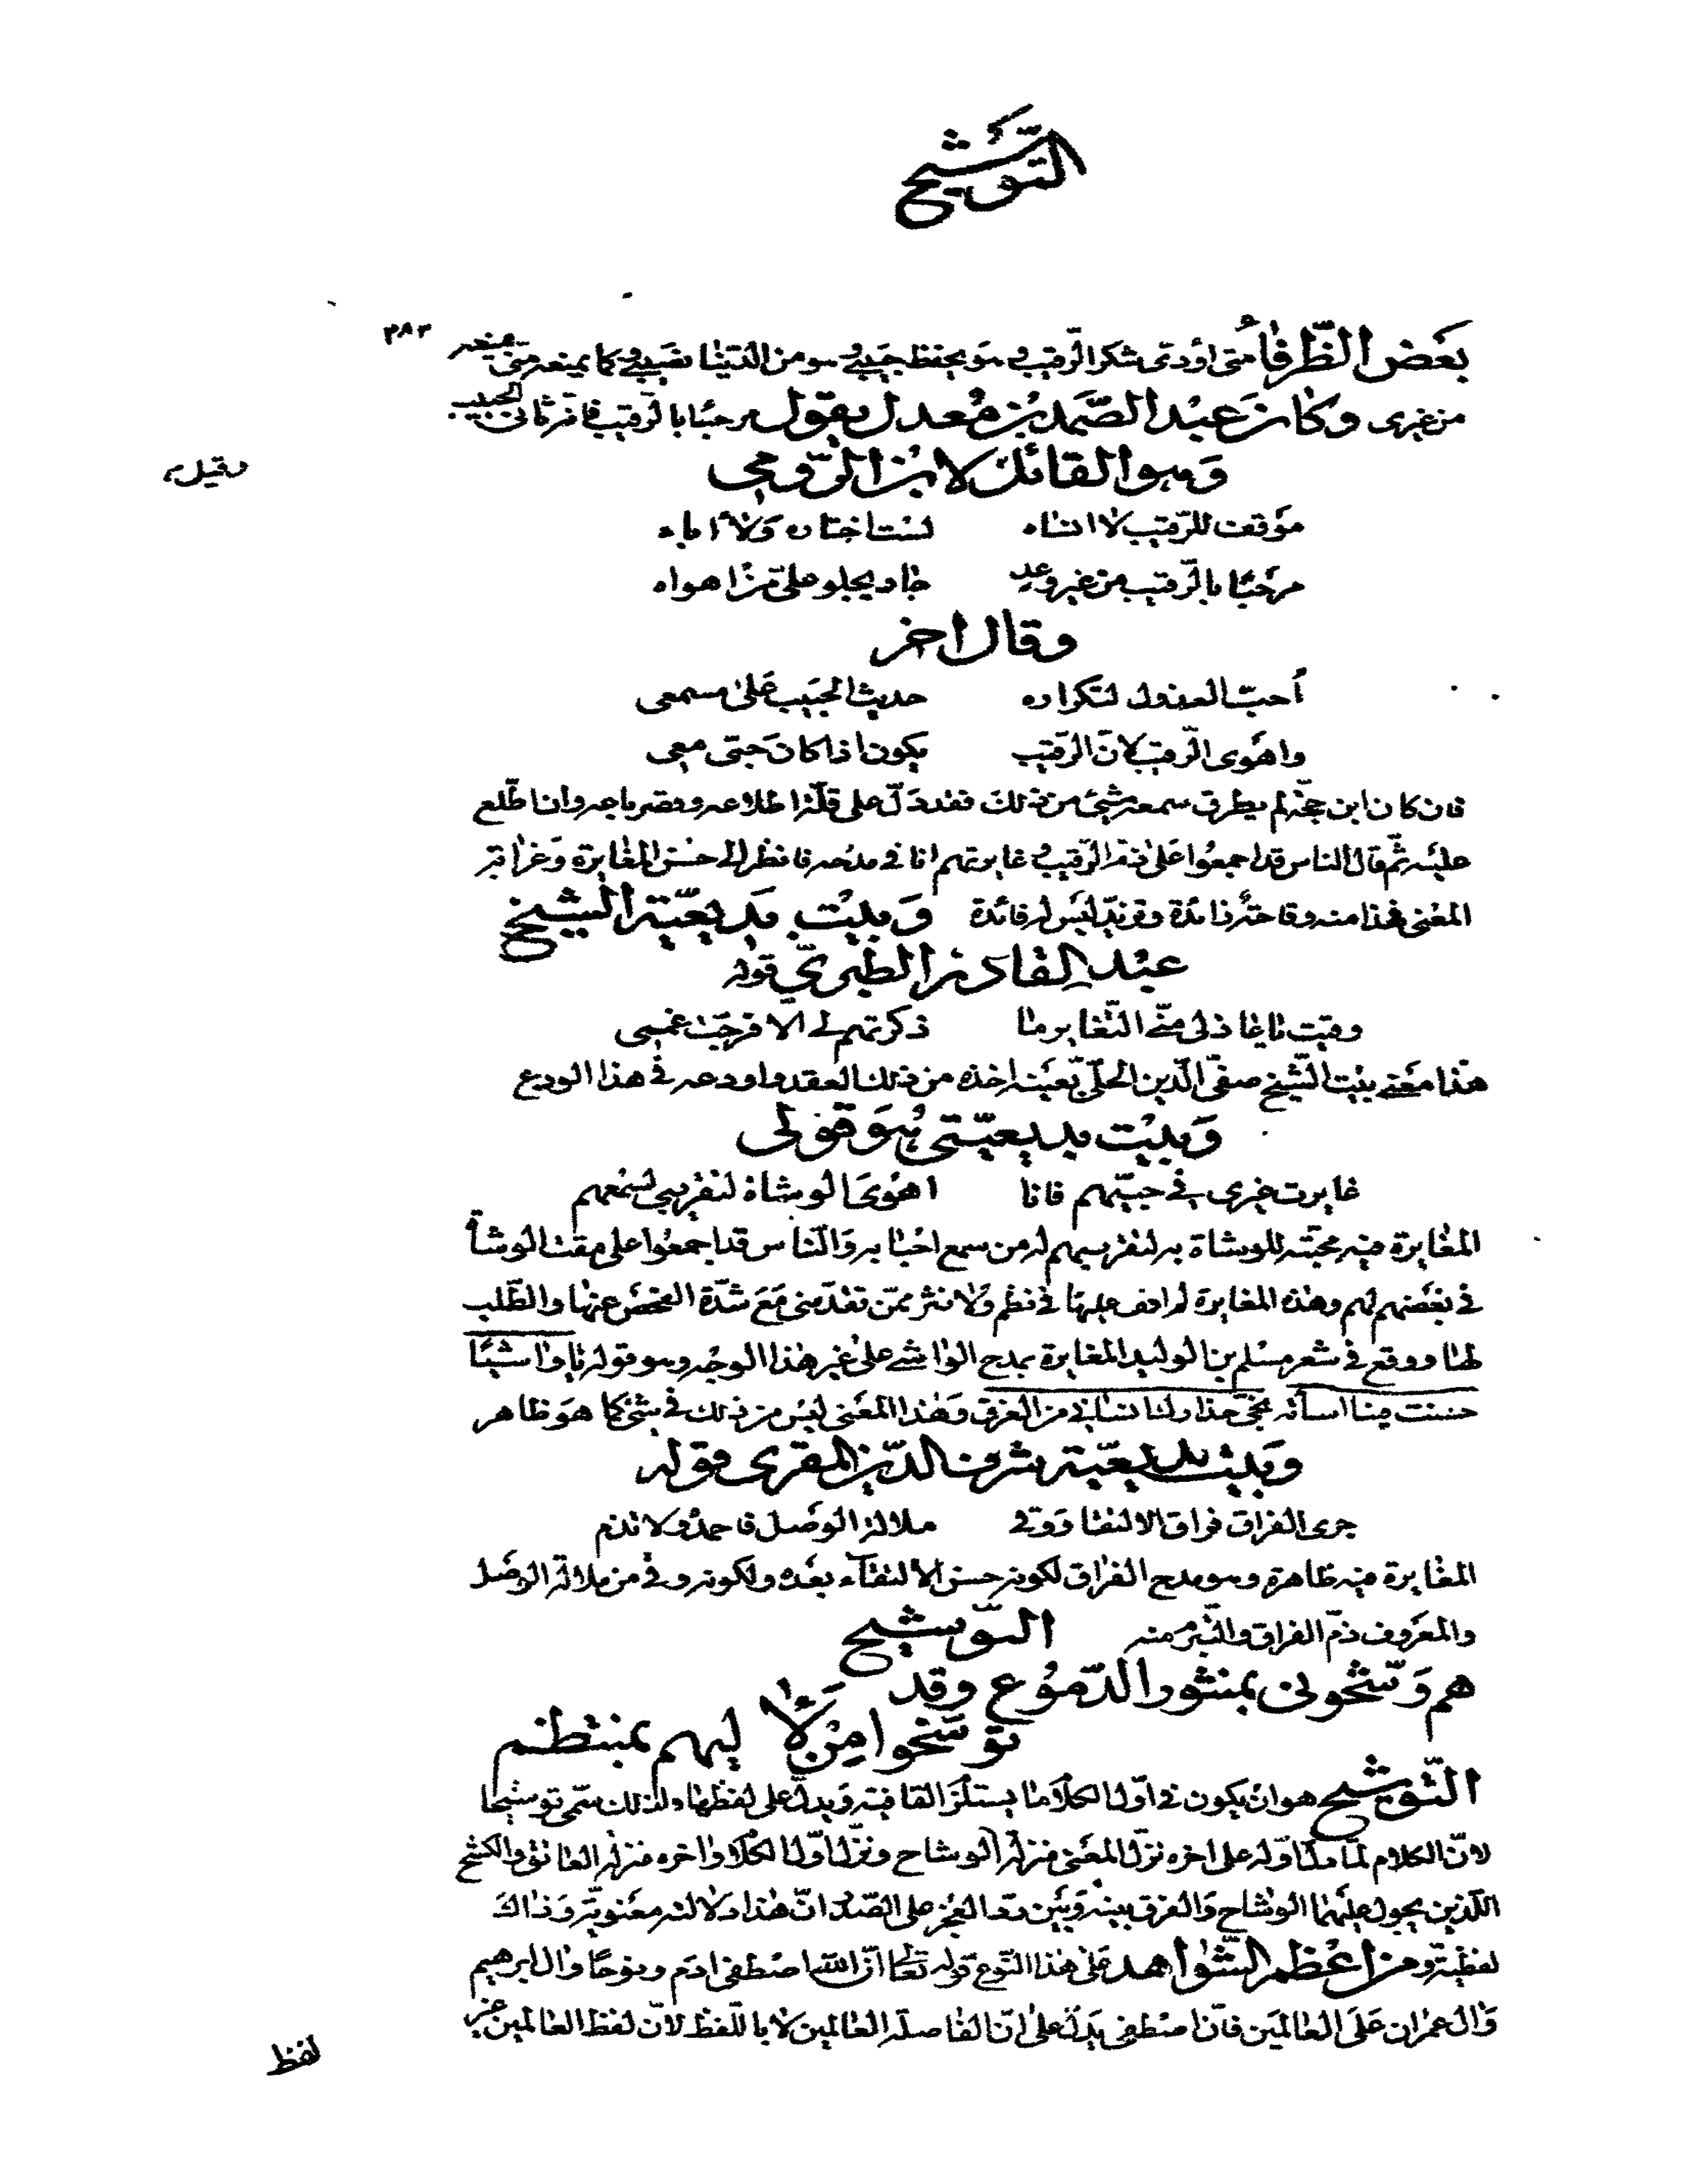 التوشيح
٣٨٣
بعض الظرفاء متى اؤدى شكر الرقيب وهو يحفظ حبيبي وهو من الدنيا نصيبي كما يمنعه منى يمنعه
من غيرى وكان عبد الصمد بن معدل يقول مرحبا بالرقيب فانه ثانى الحبيب
وقيل
وهو القائل لابن الرومي
موقف للرقيب لا انساه لست اختاره ولا اباه
مرحبا بالرقيب من غير وعد جاء يجلو على من اهواه
وقال اخر
أحب العذول لتكراره حديث الحبيب على مسمعى
واهوى الرقيب لان الرقيب يكون اذا كان حبى معى
فان كان ابن حجة لم يطرق سمعه شئ من ذلك فقد دل على قلة اطلاعه وقصر باعه وان اطلع
عليه ثم قال الناس قد اجمعوا على ذم الرقيب وغايرتهم انا في مدحه فانظر الى حسن المغايرة وغرابة
المعنى فهذا منه وقاحة زائدة وفرية ليس له فائدة وبيت بديعية الشيخ
عبد القادر الطبرى قوله
وقيت يا عاذلى منى التغاير ما ذكرتهم لى الا فرجت غمى
هذا معنى بيت الشيخ صفى الدين الحلى بعينه اخذه من ذلك العقد واودعه في هذا الودع
وبيت بديعيتى هو قولى
غايرت غيرى في حبيهم فانا اهوى الوشاة لتقريبى لسمعهم
المغايرة فيه محبته للوشاة به لتقريبهم له من سمع احبابه والناس قد اجمعوا على مقت الوشاة
في بغضهم لهم وهذه المغايرة لم اقف عليها في نظم ولا نثر ممن تقدمنى مع شدة الفحص عنها والطلب
لها ووقع في شعر مسلم بن الوليد المغايرة بمدح الواشى على غير هذا الوجه وهو قوله يا واشيا
حسنت فينا اساءته نجى حذارك انسانى من الغرق وهذا المعنى ليس من ذلك في شئ كما هو ظاهر
وبيت بديعية شرف الدين المقرى قوله
جزى الفراق فراق الالتقا ووقى ملالة الوصل فاحمده ولا تذم
المغايرة فيه ظاهرة وهو مدح الفراق لكونه حسن الالتقاء بعده ولكونه وقى من ملالة الوصل
والمعروف ذم الفراق والتبرم منه التوشيح
هم وشحونى بمنثور الدموع وقد
توشحوا من لآليهم بمنتظم
التوشيح هو ان يكون في اول الكلام ما يستلزم القافية ويدل على لفظها ولذلك سمى توشيحا
لان الكلام لما دل اوله على اخره نزل المعنى منزلة الوشاح ونزل اول الكلام واخره منزلة العاتق والكشح
اللذين يجول عليهما الوشاح والفرق بينه وبين رد العجز على الصدر ان هذا دلالته معنوية وذاك
لفظية ومن اعظم الشواهد على هذا النوع قوله تعالى ان الله اصطفى ادم ونوحا وال ابرهيم
وال عمران على العالمين فان اصطفى يدل على ان الفاصلة العالمين لا باللفظ لان لفظ العالمين غير
لفظ